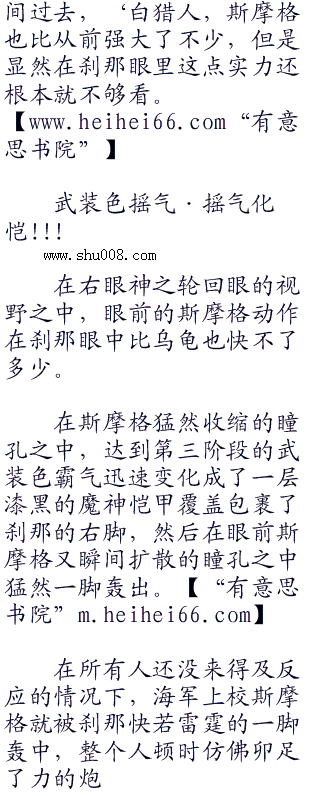 间过去，‘白猎人，斯摩格
也比从前强大了不少，但是
显然在刹那眼里这点实力还
根本就不够看。
【www.heihei66.com“有意
思书院”】
武装色摇气·摇气化
恺!!!
www.shu008.com
在右眼神之轮回眼的视
野之中，眼前的斯摩格动作
在刹那眼中比乌龟也快不了
多少。
在斯摩格猛然收缩的瞳
孔之中，达到第三阶段的武
装色霸气迅速变化成了一层
漆黑的魔神恺甲覆盖包裹了
刹那的右脚，然后在眼前斯
摩格又瞬间扩散的瞳孔之中
猛然一脚轰出。【“有意思
书院”m.heihei66.com】
在所有人还没来得及反
应的情况下，海军上校斯摩
格就被刹那快若雷霆的一脚
轰中，整个人顿时仿佛卯足
了力的炮